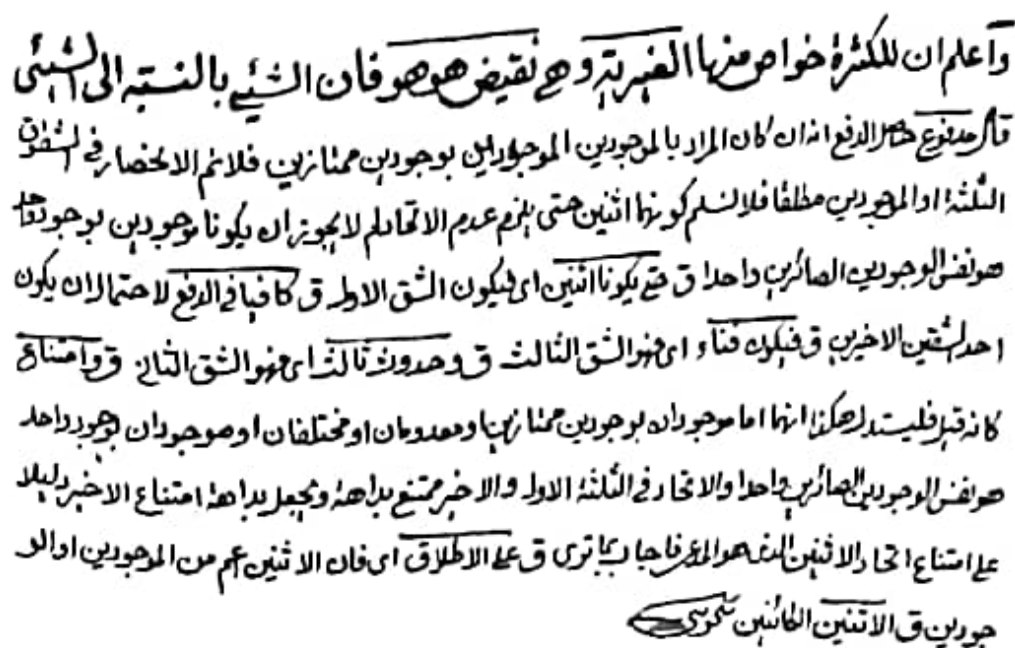 واعلم ان للكثرة خواص منها الغيرية وهي نقيض هوهو فان الشيئ بالنسبة الى الشيئ
قال مدفوع حاصل الدفع انه ان كان المراد بالموجودين الموجودين بوجودين ممتازين فلانم الانحصار في الشقوق
الثلثة او الموجودين مطلقا فلا نسلم كونهما اثنين حتى يلزم عدم الاتحاد لم لا يجوز ان يكونا موجودين بوجود واحد
هو نفس الوجودين الصائرين واحدا ق حتى يكونا اثنين اى فيكون الشق الاول ق كافيا في الدفع لاحتمال ان يكون
احد الشقين الاخيرين ق فيكون فناء اى فهو الشق الثالث ق وحدوث ثالث اى فهو الشق الثاني ق وامتناع
كانه قيل فليستدل هكذا انهما اما موجودان بوجودين ممتازين او معدومان او مختلفان او موجودان بوجود واحد
هو نفس الوجودين الصائرين واحدا والاتحاد في الثلثة الاول والاخير ممتنع بداهة ويجعل بداهة امتناع الاخير دليلا
على امتناع اتحاد الاثنين الذى هو المدعى فاجاب بما ترى ق على الاطلاق اى فان الاثنين اعم من الموجودين او المو
جودين ق الاثنين الكائنين